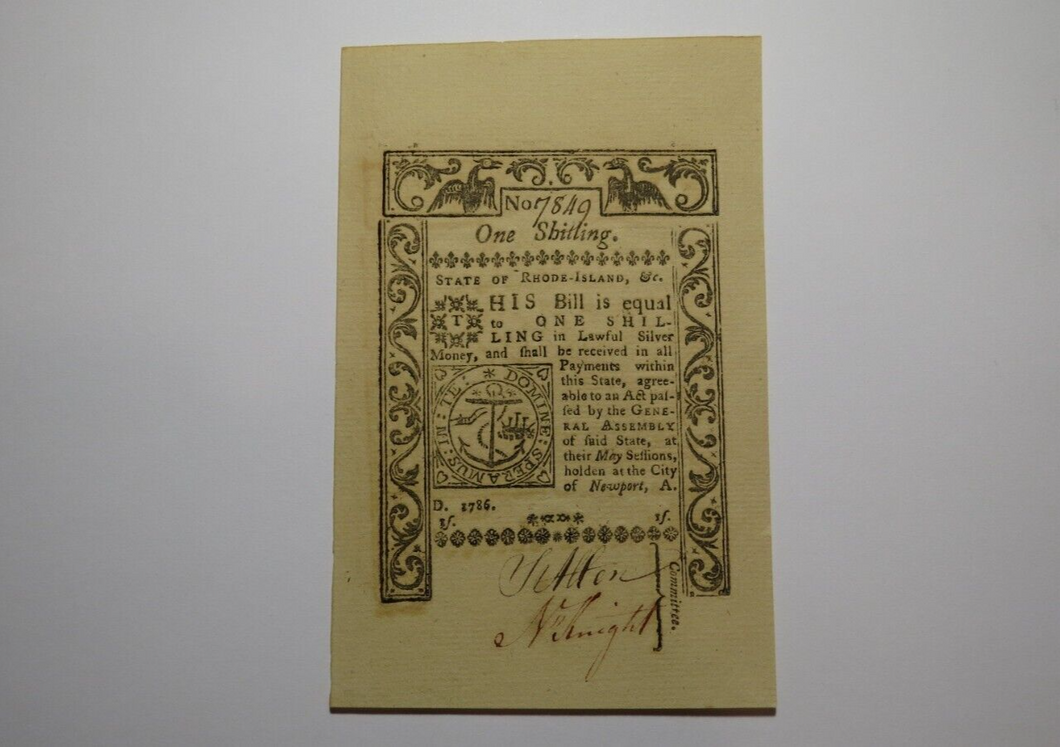 No. 7849
One Shilling.
STATE OF RHODE-ISLAND, &c.
THIS Bill is equal
to ONE SHIL-
LING in Lawful Silver
Money, and ſhall be received in all
Payments within
this State, agree-
able to an Act paſ-
ſed by the GENE-
RAL ASSEMBLY
of ſaid State, at
their May Seſſions,
holden at the City
of Newport, A.
D. 1786.
IN : TE : DOMINE : SPERAMUS :
1ſ. 1ſ.
Allen
Knight
Committee.